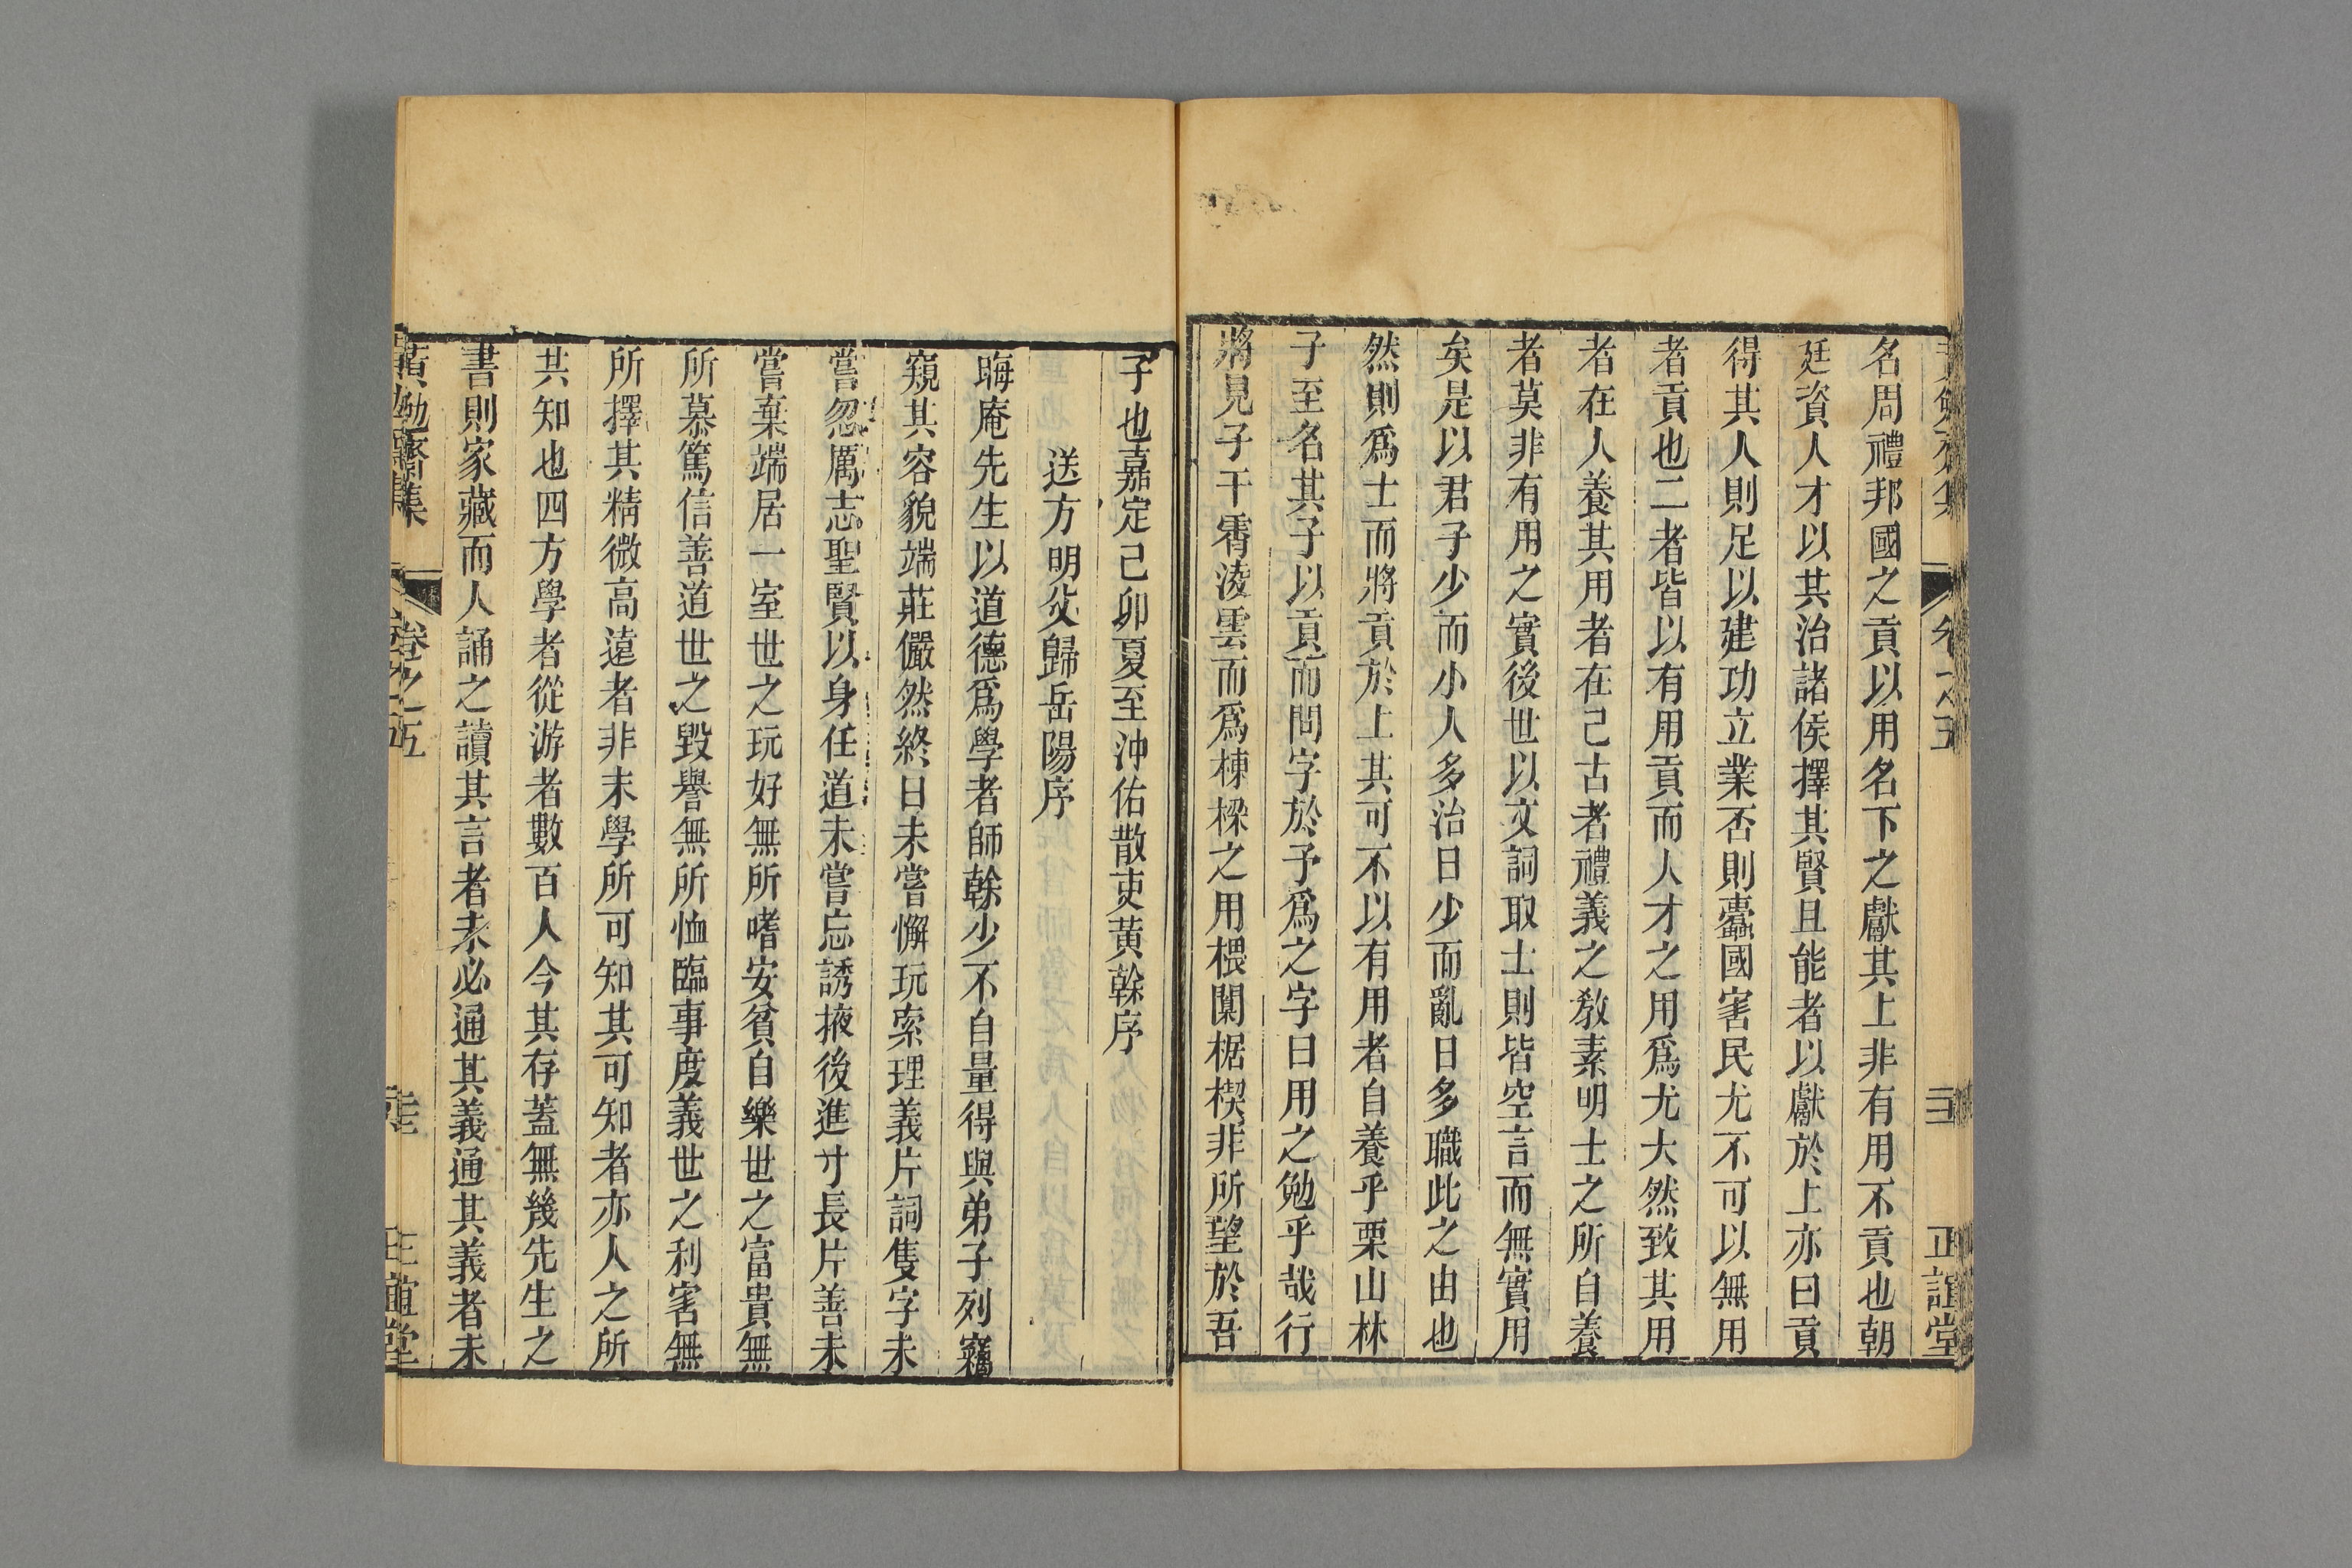 名周禮邦國之貢以用名下之獻其上非有用不貢也朝
廷資人才以其治諸侯擇其賢且能者以獻於上亦曰貢
得其人則足以建功立業否則蠹國害民尤不可以無用
者貢也二者皆以有用貢而人才之用爲尤大然致其用
者在人養其用者在己古者禮義之敎素明士之所自養
者莫非有用之實後世以文詞取士則皆空言而無實用
矣是以君子少而小人多治日少而亂日多職此之由也
然則爲士而將貢於上其可不以有用者自養乎栗山林
子至名其子以貢而問字於予爲之字曰用之勉乎哉行
將見子干霄淩雲而爲棟樑之用椳闑椐楔非所望於吾
子也嘉定己卯夏至沖佑散吏黃榦序
送方明父歸岳陽序
晦庵先生以道德爲學者師榦少不自量得與弟子列竊
窺其容貌端莊儼然終日未嘗懈玩索理義片詞隻字未
嘗忽厲志聖賢以身任道未嘗忘誘掖後進寸長片善未
嘗棄端居一室世之玩好無所嗜安貧自樂世之富貴無
所慕篤信善道世之毀譽無所恤臨事度義世之利害無
所擇其精微高遠者非末學所可知其可知者亦人之所
共知也四方學者從游者數百人今其存蓋無幾先生之
書則家藏而人誦之讀其言者未必通其義通其義者未
黃勉齋集
卷之五
正誼堂